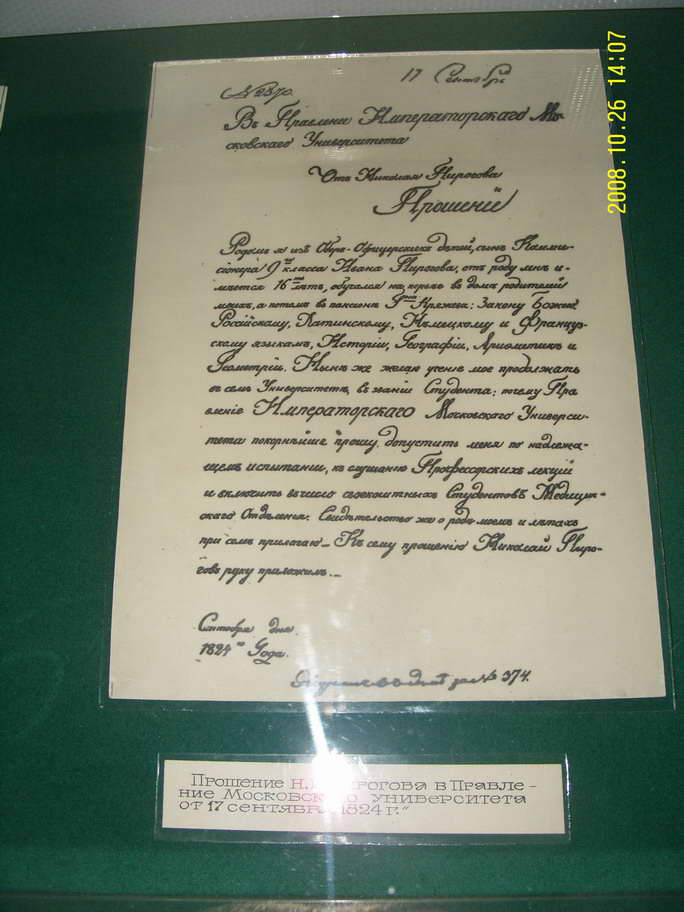 17 Сентябр
Въ Правленіе Императорскаго Мо-
сковскаго Университета
Отъ Николая Пирогова
Прошеніе
Родомъ я изъ Оберъ-Офицерскихъ детей, сынъ Комми-
сіонера 9го класса Ивана Пирогова, отъ роду мне и-
меется 16 летъ, обучался на перьво въ доме родителей
моихъ, а потомъ въ пансионе Гна Кряжева: Закону Божію
Россійскому, Латинскому, Немецкому и Францус-
скому языкамъ, Исторіи, Географіи, Арифметике и
Геометріи. Ныне же желаю ученіе мое продолжать
въ семъ Университете, въ званіи Студента; почему Пра
вленіе Императорскаго Московскаго Универси-
тета покорнейше прошу допустить меня по надлежа-
щемъ испытаніи, къ слушанію Профессорскихъ лекцій
и включить въ число своекоштныхъ Студентовъ Медицин-
скаго Отделенія. Свидетельство же о роде моемъ и летахъ
при семъ прилагаю_ Къ сему прошенію Николай Пиро-
говъ руку приложилъ._
Сентября дня
1824го Года.
№ 374.
Прошение Н. Пирогова в Правле-
ние Московского университета
от 17 сентября 1824 г."
2008.10.26 14:07